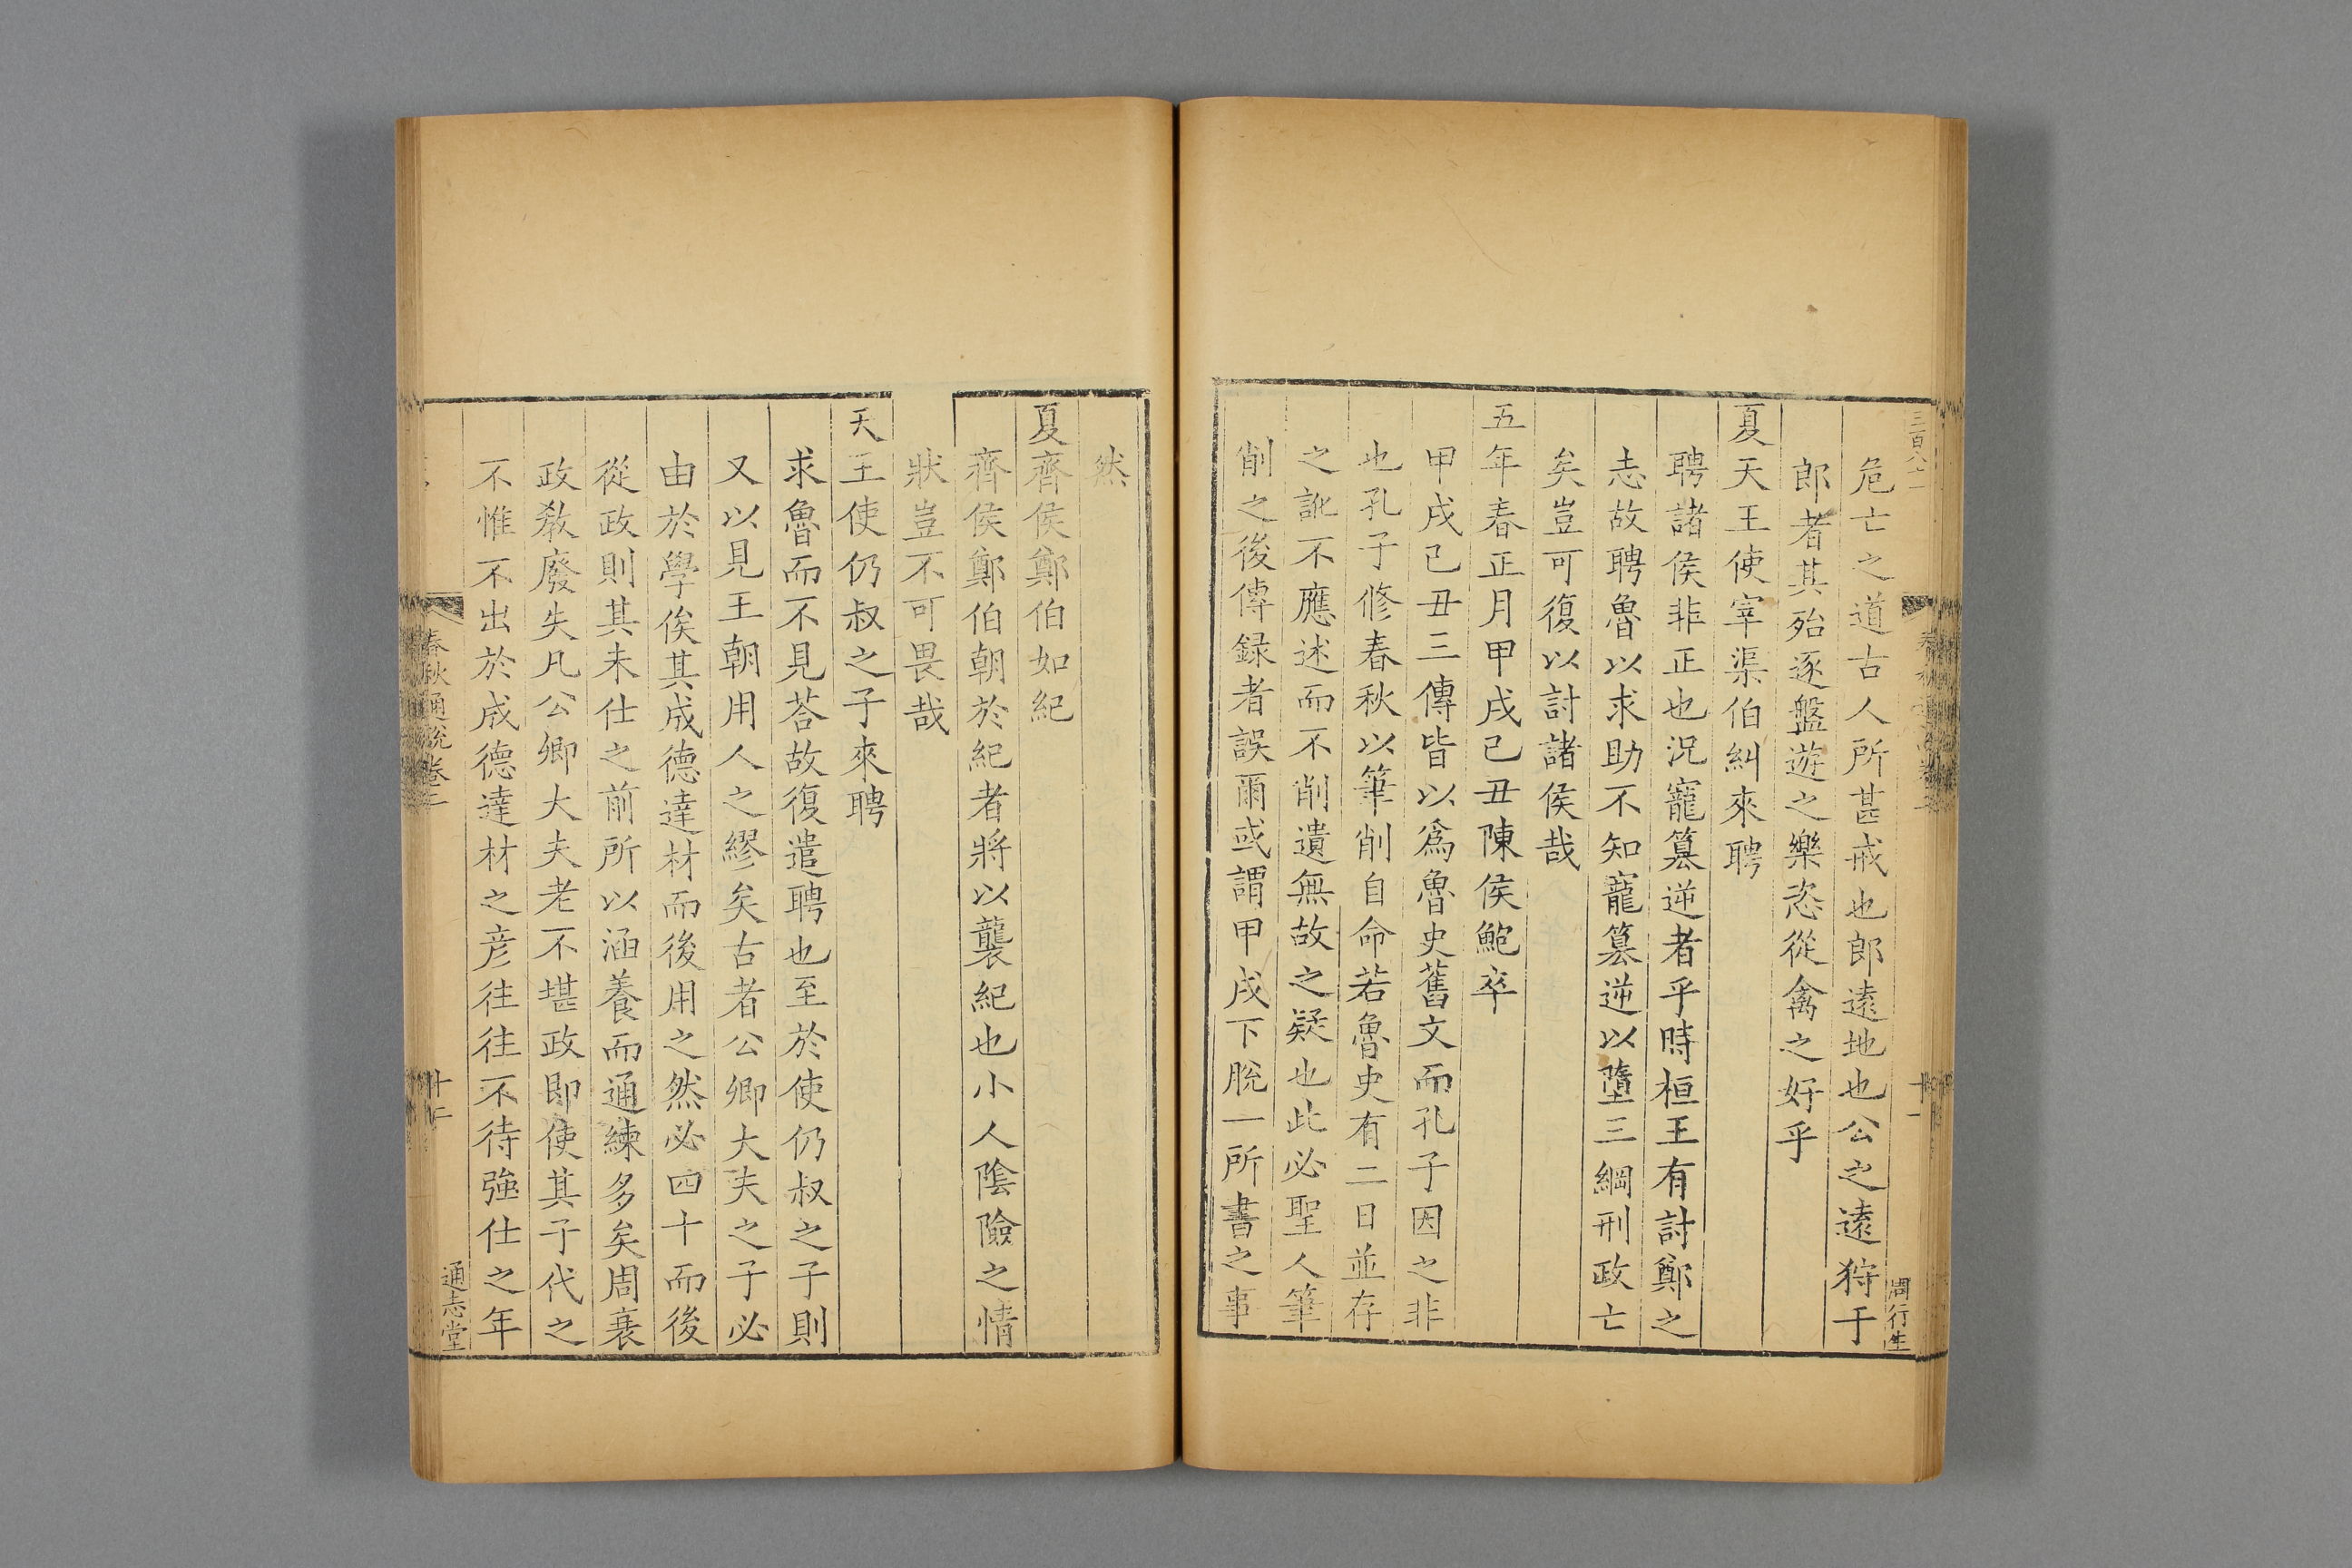 三百八十
周行生
危亡之道古人所甚戒也郎遠地也公之遠狩于
郎者其殆逐盤遊之樂恣從禽之好乎
夏天王使宰渠伯糾來聘
聘諸侯非正也況寵篡逆者乎時桓王有討鄭之
志故聘魯以求助不知寵篡逆以墮三綱刑政亡
矣豈可復以討諸侯哉
五年春正月甲戌己丑陳侯鮑卒
甲戌已丑三傳皆以爲魯史舊文而孔子因之非
也孔子修春秋以筆削自命若魯史有二日並存
之訛不應述而不削遺無故之疑也此必聖人筆
削之後傳録者誤爾或謂甲戌下脫一所書之事
然
夏齊侯鄭伯如紀
齊侯鄭伯朝於紀者將以襲紀也小人隂險之情
狀豈不可畏哉
天王使仍叔之子來聘
求魯而不見荅故復遣聘也至於使仍叔之子則
又以見王朝用人之繆矣古者公卿大夫之子必
由於學俟其成德達材而後用之然必四十而後
從政則其未仕之前所以涵養而通練多矣周衰
政敎廢失凡公卿大夫老不堪政即使其子代之
不惟不出於成德達材之彦往往不待強仕之年
春秋通說卷二
十二
通志堂